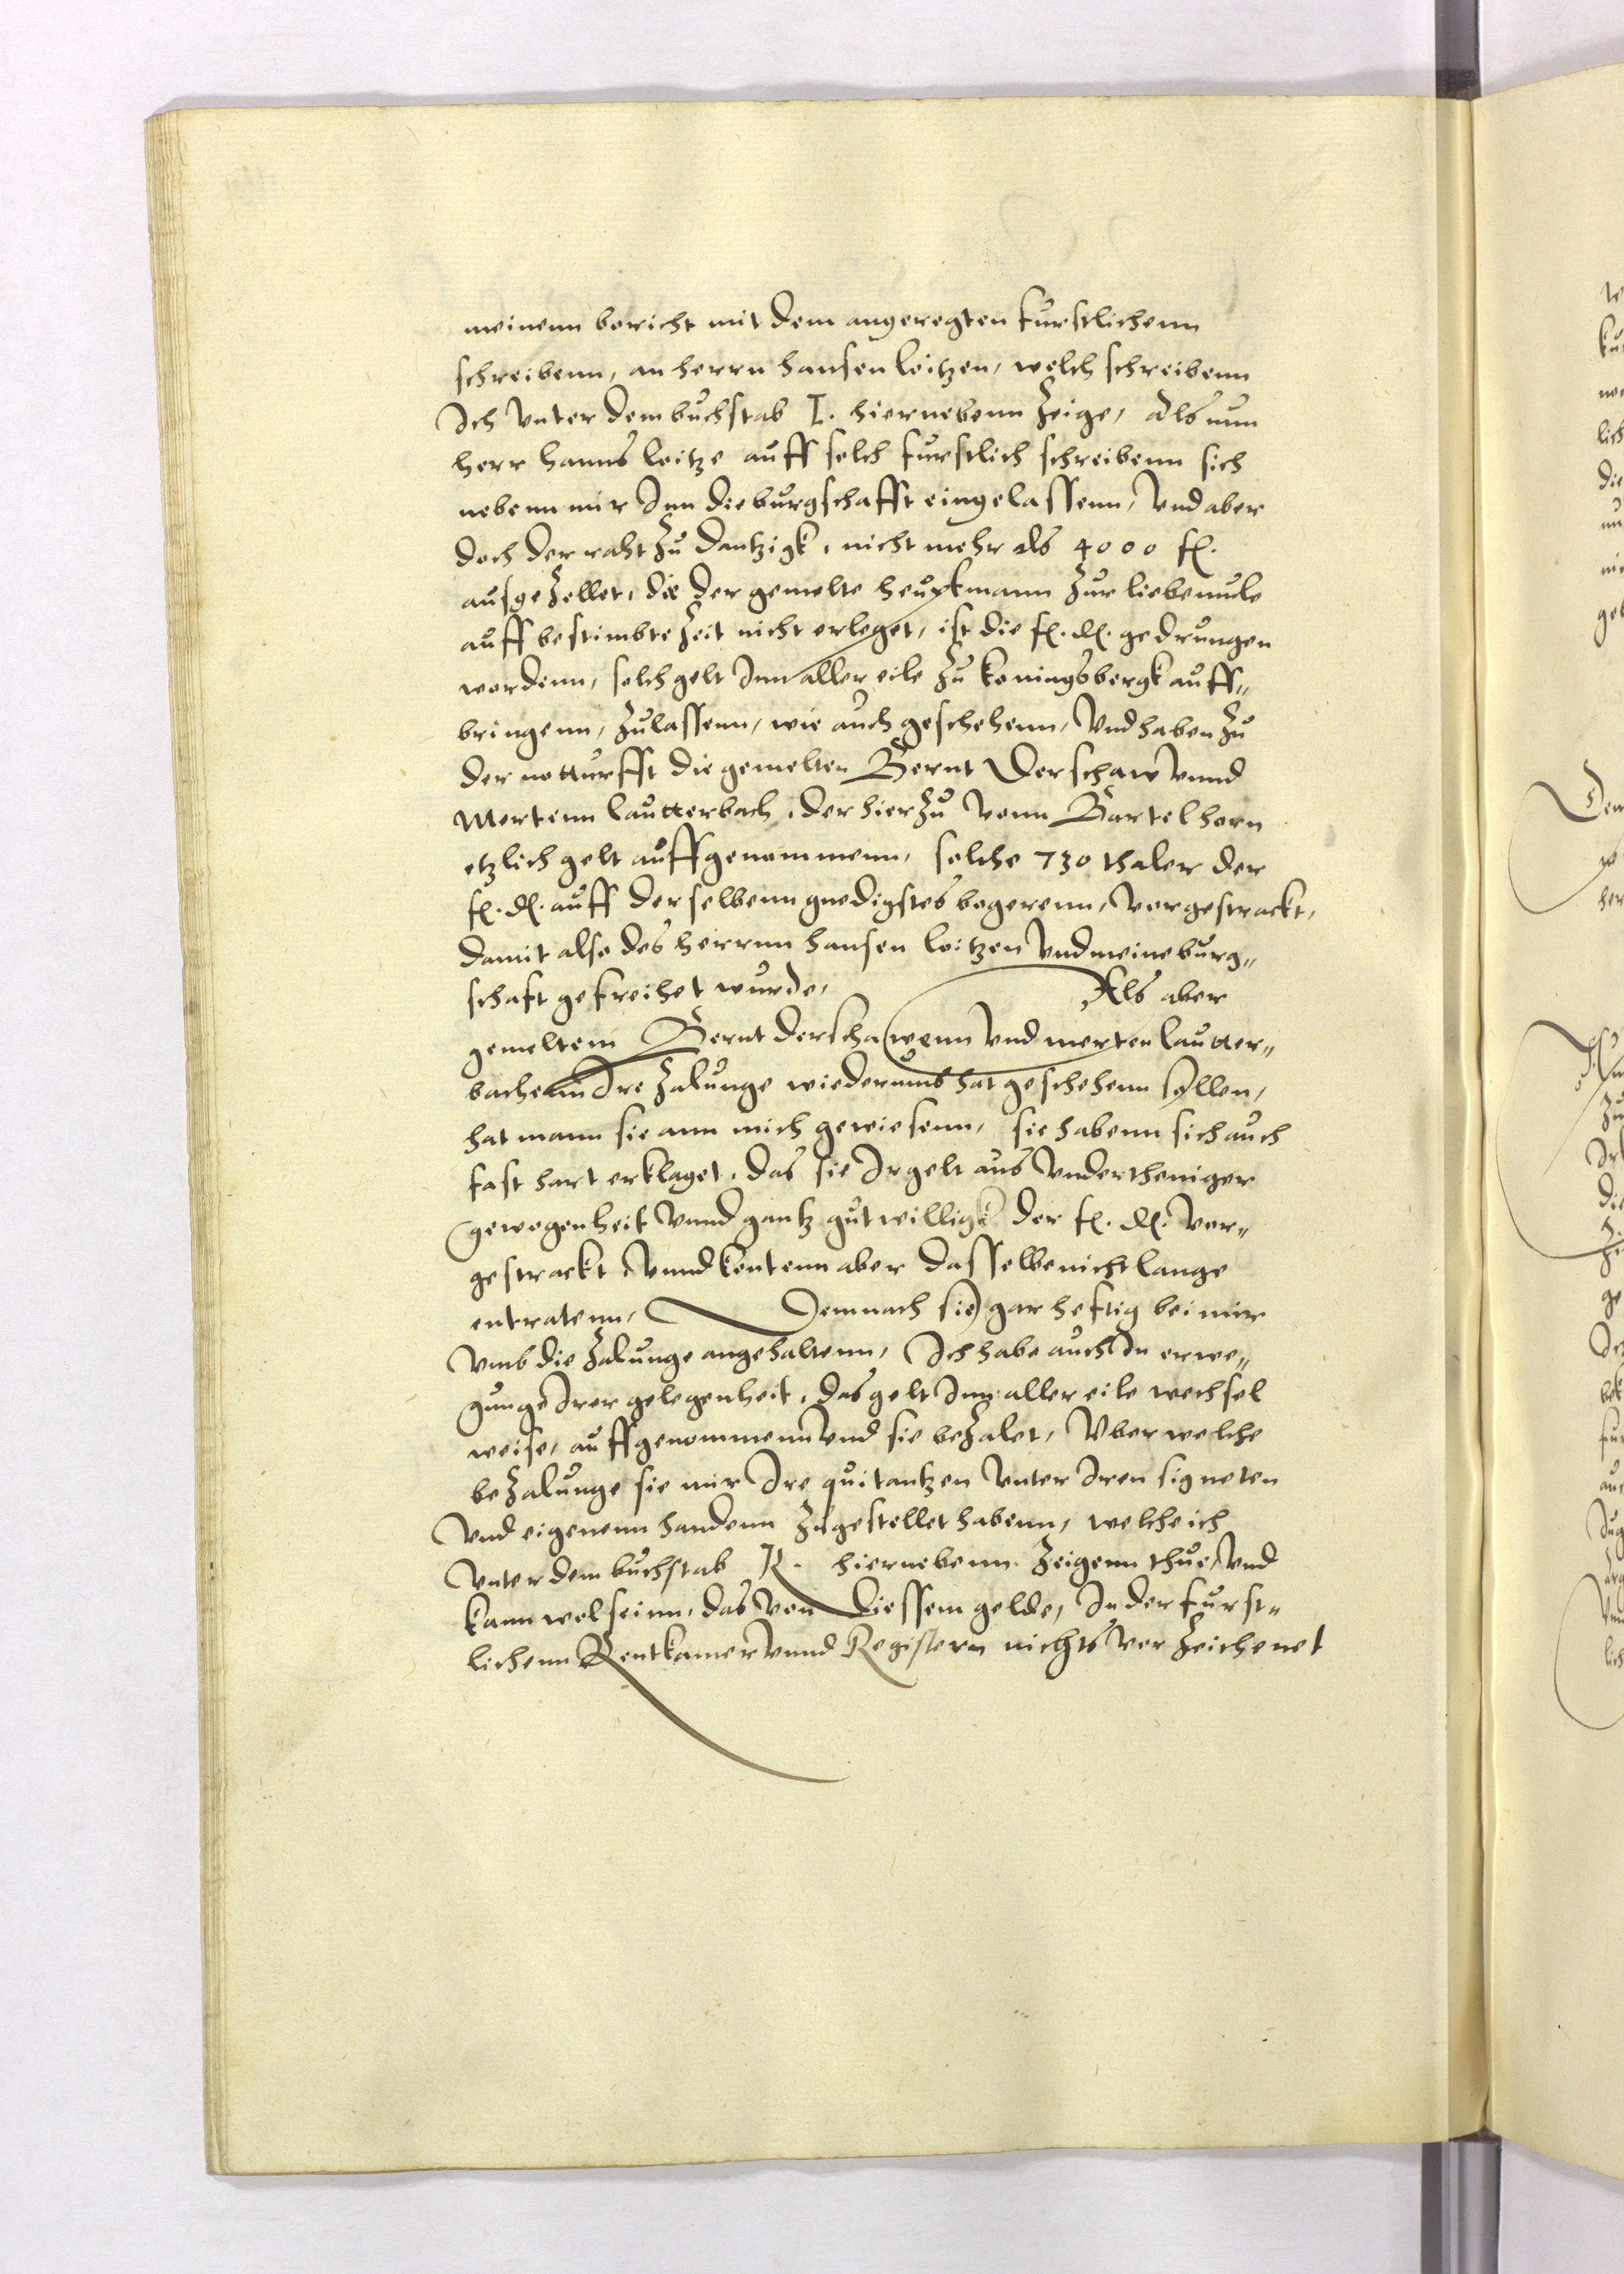 meinenn bericht mit dem angeregten furstlichenn
schreibenn, an herrn hansen leitzen, welch schreibenn
Ich vnter dem buchstab I. hiernebenn Zeige, Als nun
herr hanns leitze auff solch furstlich schreibenn sich
nebenn mir Inn die burgschafft eingelassenn, Vnd aber
doch der raht Zu dantzigk, nicht mehr als 4000 fl.
ausgeZellet, die der gemelte heuptmann Zur liebemule
auff bestimbte Zeit nicht erleget, ist die f. d. gedrungen
wordenn, solch gelt Inn aller eile Zu konigsbergk auff„
bringenn, Zulassenn, wie auch geschehenn, Vnd haben Zu
der notturfft die gemelten Bernt Derschaw vnnd
Mertenn lautterbach, der hierZu vonn Bartel horn
etzlich gelt auffgenommenn, solche 730 thaler der
f. d. auff derselbenn gnedigstes begerenn, vorgestrackt,
damit also des herrnn hansen leitzen vnd meine burg„
schaft gefreihet wurde, Als aber
gemeltem Bernt derschawenn vnd merten lautter„
bachenn Ire Zalunge wiederumb hat geschehenn sollen,
hat mann sie ann mich gewiesenn, sie habenn sich auch
fast hart erklaget, das sie Ir gelt aus vndertheniger
gewogenheit vnnd gantz gutwilligk der f. d. vor„
gestrackt vnnd kontenn aber dasselbe nicht lange
entratenn, Demnach sie gar heftig bei mir
vmb die Zalunge angehaltenn, Ich habe auch In erwe„
gunge Irer gelegenheit, das gelt Inn aller eile wechsel
weise, auffgenommenn vnd sie beZalet, Vber welche
beZalunge sie mir Ire quitantzen vnter Iren signeten
vnd eigenenn handenn Zugestellet habenn, welche ich
vnter dem buchstab K. hiernebenn Zeigenn thue, vnd
kann wol seinn, das von diessem gelde, In der furst„
lichenn Rentkamer vnnd Registern nichts vorZeichenet